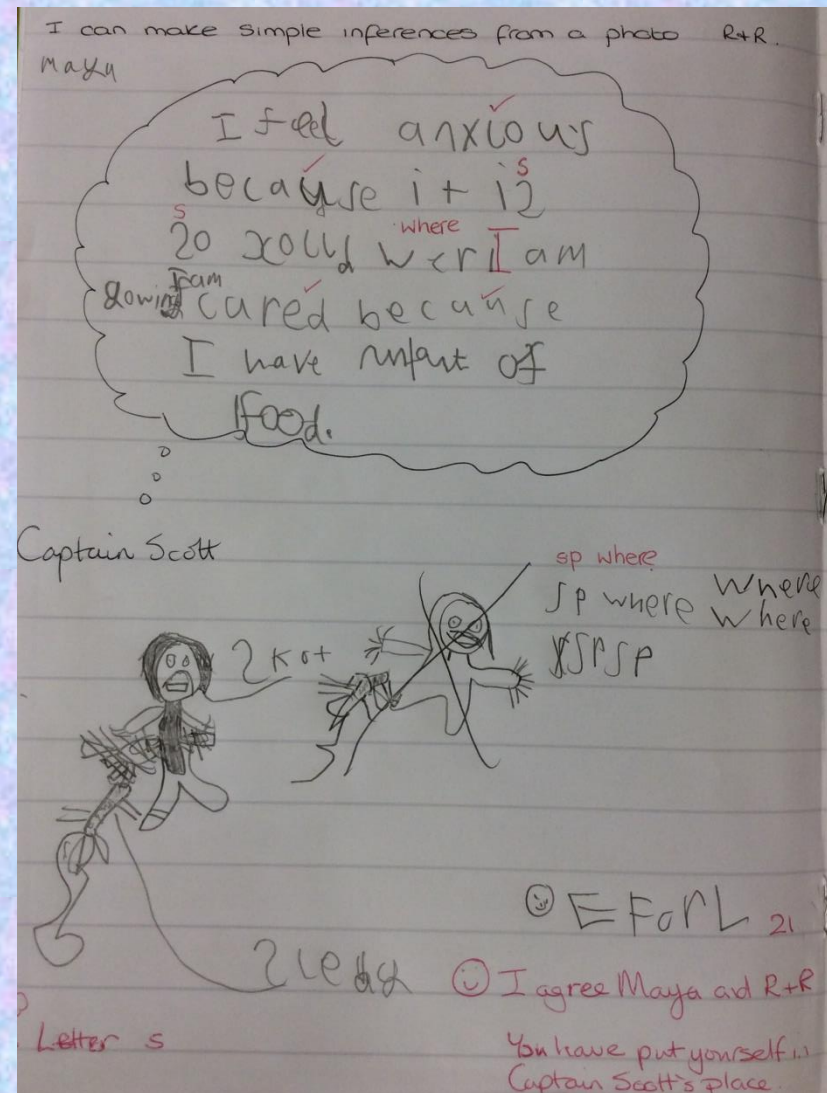 I can make simple inferences from a photo R+R.
Maya
I feel anxious
because it i2
s
s
20 xould wer I am
where
I am
gowing cured because
I have runfaut of
food.
Captain Scott
sp where
sp where where
where
spsp
2kot
2ledg
☺ E ForL 21
☺ I agree Maya and R+R
You have put yourself in
Captain Scott's place.
Letter s